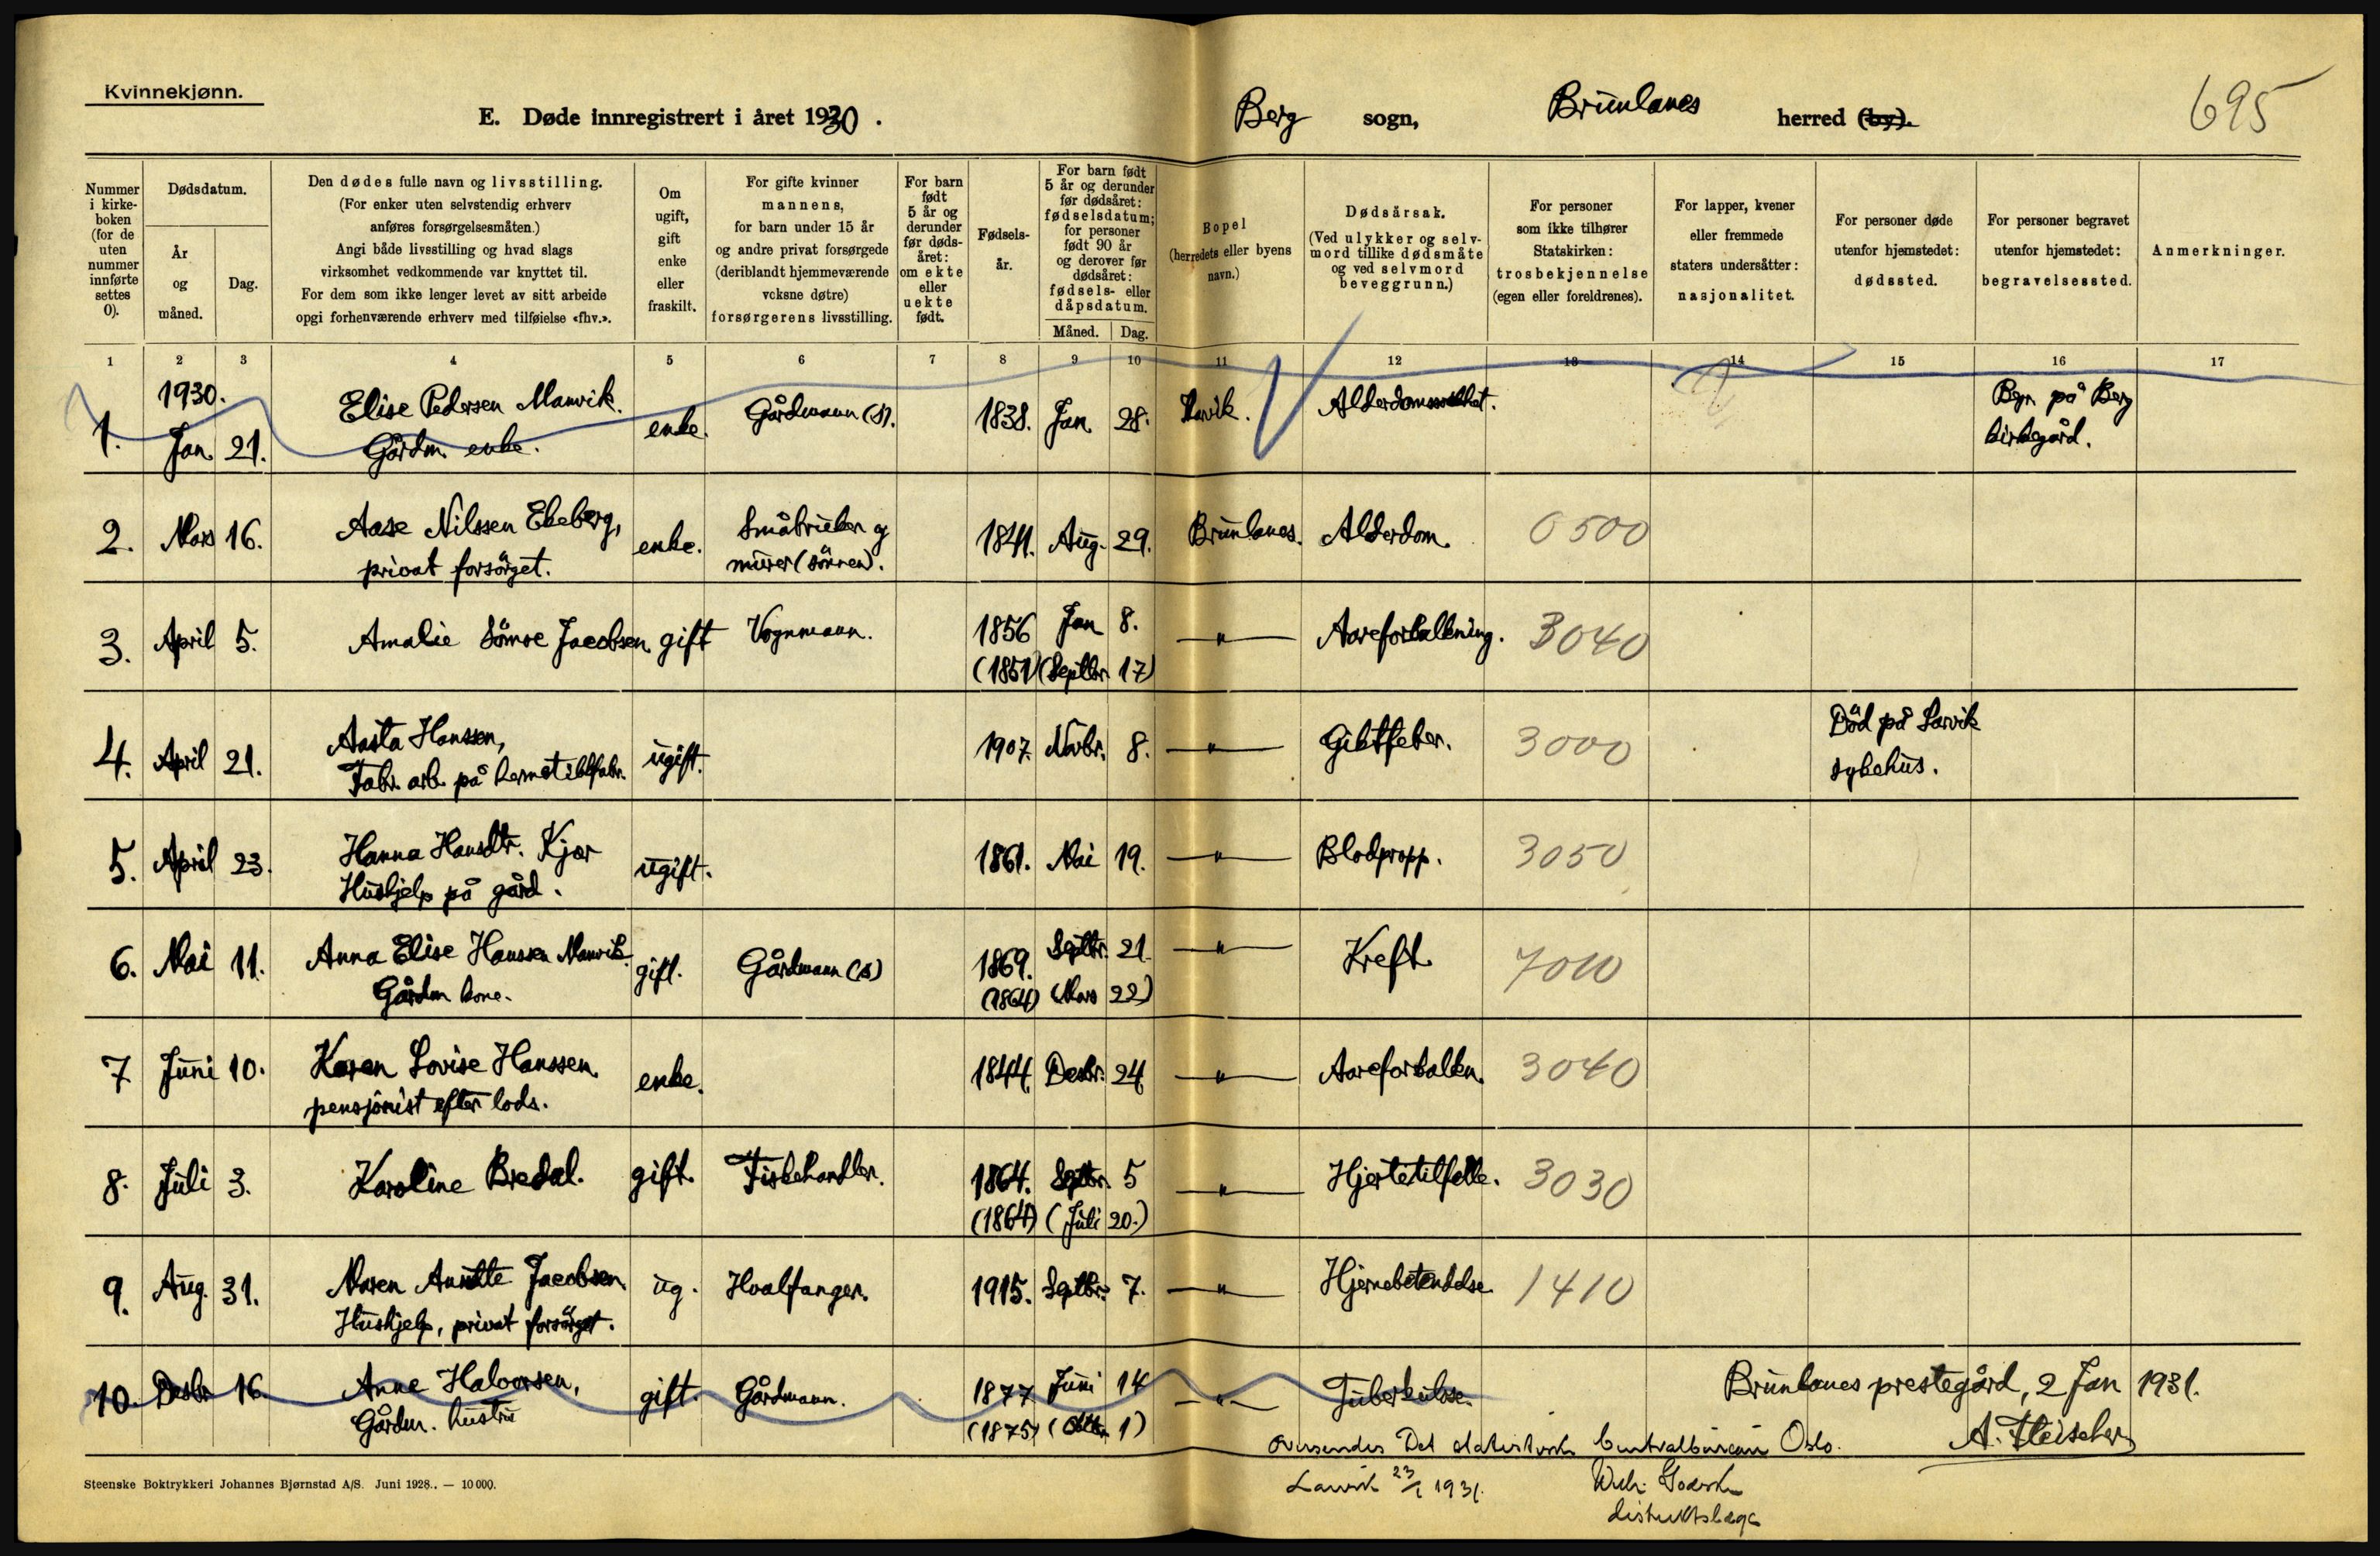 Kvinnekjønn.
E. Døde innregistrert i året 1930.
Berg sogn, Brunlanes herred (by).
695
Nummer i kirke-boken (for de uten nummer innførte settes 0).
Dødsdatum.
År og måned.
Dag.
Den dødes fulle navn og livsstilling.
(For enker uten selvstendig erhverv
anføres forsørgelsesmåten.)
Angi både livsstilling og hvad slags
virksomhet vedkommende var knyttet til.
For dem som ikke lenger levet av sitt arbeide
opgi forhenværende erhverv med tilføielse «fhv.».
Om ugift, gift enke eller fraskilt.
For gifte kvinner
mannens,
for barn under 15 år
og andre privat forsørgede
(deriblandt hjemmeværende
voksne døtre)
forsørgerens livsstilling.
For barn født 5 år og derunder før døds-året: om ekte eller uekte født.
Fødsels-år.
For barn født
5 år og derunder
før dødsåret:
fødselsdatum;
for personer
født 90 år
og derover før
dødsåret:
fødsels- eller
dåpsdatum.
Måned. Dag.
Bopel
(herredets eller byens
navn.)
Dødsårsak.
(Ved ulykker og selv-
mord tillike dødsmåte
og ved selvmord
beveggrunn.)
For personer
som ikke tilhører
Statskirken:
trosbekjennelse
(egen eller foreldrenes).
For lapper, kvener
eller fremmede
staters undersåtter:
nasjonalitet.
For personer døde
utenfor hjemstedet:
dødssted.
For personer begravet
utenfor hjemstedet:
begravelsessted.
Anmerkninger.
1 2 3 4 5 6 7 8 9 10 11 12 13 14 15 16 17
1930.
1. Jan. 21. Elise Pedersen Manvik. enke. Gårdmann (s). 1838. Jan. 28. Larvik. Alderdomssvakhet. Begr. på Berg
Gårdm. enke. kirkegård.
2. Mars 16. Aase Nilssen Ekeberg, enke. Småbruker og 1841. Aug. 29. Brunlanes. Alderdom. 0500
privat forsörget. murer (sönnen).
3. April 5. Amalie Sömoe Jacobsen gift Vognmann. 1856 Jan 8. —"— Aareforkalkning. 3040
(1851) (Septbr. 17)
4. April 21. Aasta Hanssen, ugift. 1907. Novbr. 8. —"— Giktfeber. 3000 Död på Larvik
Fabr. arb. på hermetikkfabr. sykehus.
5. April 23. Hanna Hansdtr. Kjær ugift. 1861. Mai 19. —"— Blodpropp. 3050
Hushjelp på gård.
6. Mai 11. Anna Elise Hanssen Manvik. gift. Gårdmann (s) 1869. Septbr. 21. —"— Kreft 7010
Gårdm kone. (1864) (Mars 22)
7 Juni 10. Karen Lovise Hanssen. enke. 1844. Desbr. 24 —"— Aareforkalkn. 3040
pensjonist efter lods.
8. Juli 3. Karoline Bredal. gift. Fiskehandler. 1864. Septbr. 5 —"— Hjertetilfelle. 3030
(1864) (Juli 20.)
9. Aug. 31. Maren Anette Jacobsen. ug. Hvalfanger. 1915. Septbr. 7. —"— Hjernebetendelse 1410
Hushjelp, privat forsörget.
10. Desbr 16 Anne Halvorsen, gift. Gårdmann. 1877 Juni 14 —"— Tuberkulose. Brunlanes prestegård, 2 Jan 1931.
Gårdm. hustru (1875) (Oktbr. 1) A. Fleischer
Oversendes Det statistiske Centralbureau Oslo.
Larvik 23/1 1931.
distriktslæge
Steenske Boktrykkeri Johannes Bjørnstad A/S. Juni 1928.. — 10 000.